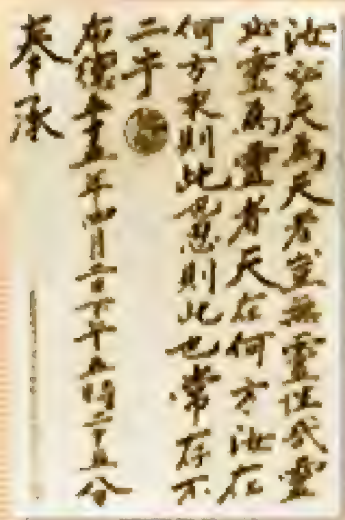 汝必天爲天者豈無靈性哉靈
必靈爲靈者天在何方汝在
何方求則此也思則此也常存不
二乎
布德五十五年四月二日下午五時二十五分
奉承